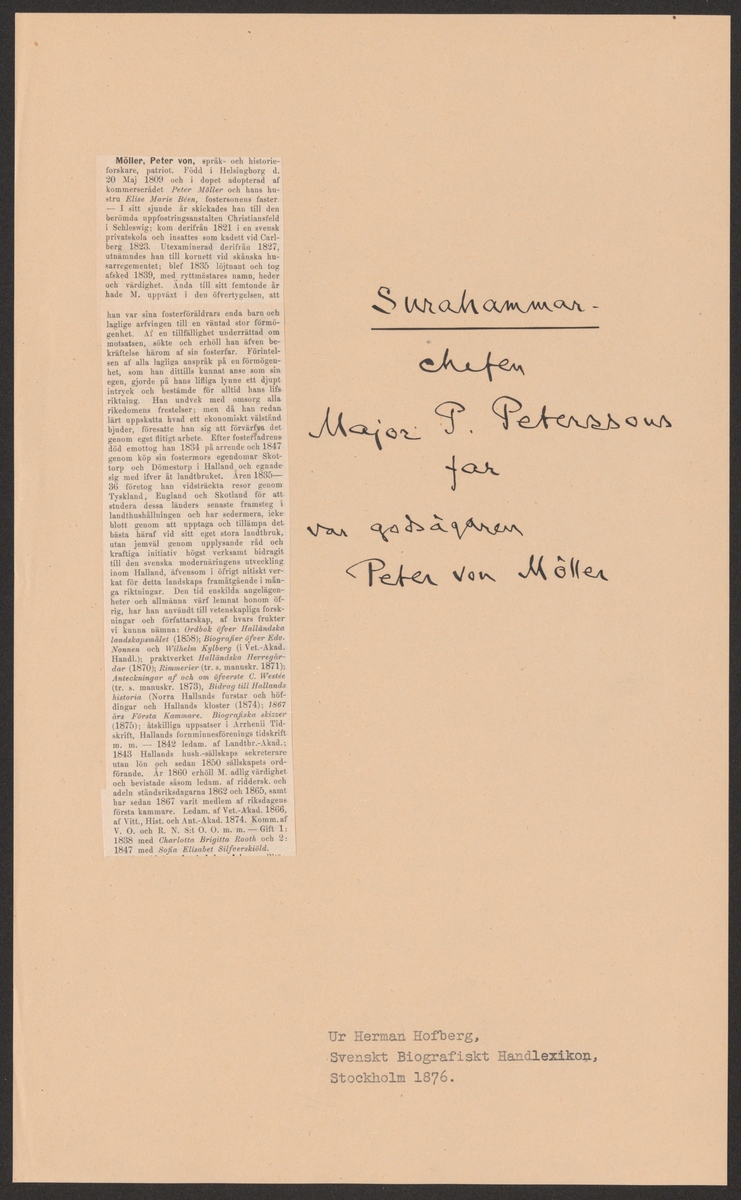 Möller, Peter von, språk- och historie-
forskare, patriot. Född i Helsingborg d.
20 Maj 1809 och i dopet adopterad af
kommerserådet Peter Möller och hans hu-
stru Elise Marie Béen, fostersonens faster.
— I sitt sjunde år skickades han till den
berömda uppfostringsanstalten Christiansfeld
i Schleswig; kom derifrån 1821 i en svensk
privatskola och insattes som kadett vid Carl-
berg 1823. Utexaminerad derifrån 1827,
utnämndes han till kornett vid skånska hu-
sarregementet; blef 1835 löjtnant och tog
afsked 1839, med ryttmästares namn, heder
och värdighet. Ända till sitt femtonde år
hade M. uppväxt i den öfvertygelsen, att
han var sina fosterföräldrars enda barn och
laglige arfvingen till en väntad stor förmö-
genhet. Af en tillfällighet underrättad om
motsatsen, sökte och erhöll han äfven be-
kräftelse härom af sin fosterfar. Förintel-
sen af alla lagliga anspråk på en förmögen-
het, som han dittills kunnat anse som sin
egen, gjorde på hans lifliga lynne ett djupt
intryck och bestämde för alltid hans lifs
riktning. Han undvek med omsorg alla
rikedomens frestelser; men då han redan
lärt uppskatta hvad ett ekonomiskt välstånd
bjuder, föresatte han sig att förvärfva det
genom eget flitigt arbete. Efter fosterfadrens
död emottog han 1834 på arrende och 1847
genom köp sin fostermors egendomar Skot-
torp och Dömestorp i Halland och egnade
sig med ifver åt landtbruket. Åren 1835—
36 företog han vidsträckta resor genom
Tyskland, England och Skotland för att
studera dessa länders senaste framsteg i
landthushållningen och har sedermera, icke
blott genom att upptaga och tillämpa det
bästa häraf vid sitt eget stora landtbruk,
utan jemväl genom upplysande råd och
kraftiga initiativ högst verksamt bidragit
till den svenska modernäringens utveckling
inom Halland, äfvensom i öfrigt nitiskt ver-
kat för detta landskaps framåtgående i mån-
ga riktningar. Den tid enskilda angelägen-
heter och allmänna värf lemnat honom öf-
rig, har han användt till vetenskapliga forsk-
ningar och författarskap, af hvars frukter
vi kunna nämna: Ordbok öfver Halländska
landskapsmålet (1858); Biografier öfver Edv.
Nonnen och Wilhelm Kylberg (i Vet.-Akad.
Handl.); praktverket Halländska Herregår-
dar (1870); Rimmerier (tr. s. manuskr. 1871);
Anteckningar af och om öfverste C. Westée
(tr. s. manuskr. 1873), Bidrag till Hallands
historia (Norra Hallands furstar och höf-
dingar och Hallands kloster (1874); 1867
års Första Kammare. Biografiska skizzer
(1875); åtskilliga uppsatser i Arrhenii Tid-
skrift, Hallands fornminnesförenings tidskrift
m. m. — 1842 ledam. af Landtbr.-Akad.;
1843 Hallands hush.-sällskaps sekreterare
utan lön och sedan 1850 sällskapets ord-
förande. År 1860 erhöll M. adlig värdighet
och bevistade såsom ledam. af riddersk. och
adeln ståndsriksdagarna 1862 och 1865, samt
har sedan 1867 varit medlem af riksdagens
första kammare. Ledam. af Vet.-Akad. 1866,
af Vitt., Hist. och Ant.-Akad. 1874. Komm. af
V. O. och R. N. S:t O. O. m. m. — Gift 1:
1838 med Charlotta Brigitta Rooth och 2:
1847 med Sofia Elisabet Silfverskiöld.
Surahammar-
chefen
Major P. Peterssons
far
var godsägaren
Peter von Möller
Ur Herman Hofberg,
Svenskt Biografiskt Handlexikon,
Stockholm 1876.